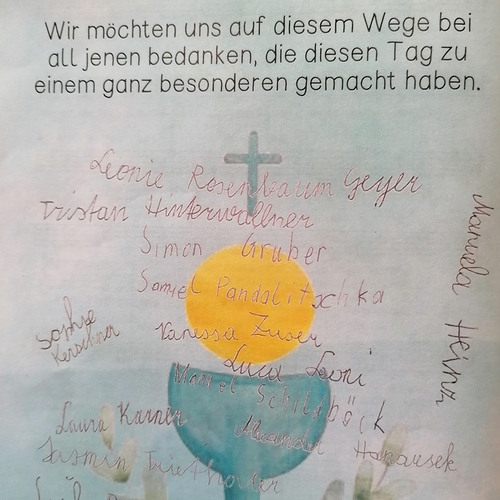 Wir möchten uns auf diesem Wege bei
all jenen bedanken, die diesen Tag zu
einem ganz besonderen gemacht haben.
Leonie Rosenbaum Geyer
Tristan Hinterwallner
Simon Gruber
Samuel Pandalitschka
Vanessa Zuser
Luca Leoni
Manuela Heinz
Sophie
Kerschner
Manuel Schildböck
Laura Karner
Hanausek
Jasmin